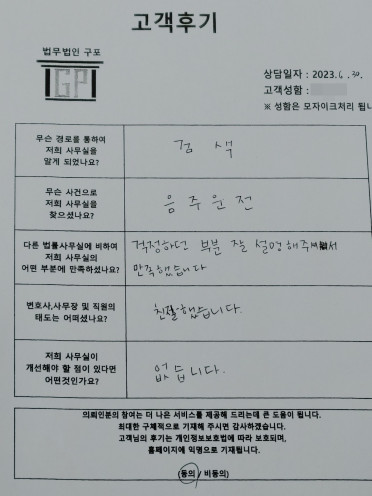 고객후기
법무법인 구포
GP
상담일자 : 2023. 6. 30.
고객성함 :
※ 성함은 모자이크처리 됩니
무슨 경로를 통하여
저희 사무실을
알게 되었나요?
검 색
무슨 사건으로
저희 사무실을
찾으셨나요?
음 주 운 전
다른 법률사무실에 비하여
저희 사무실의
어떤 부분에 만족하셨나요?
걱정하던 부분 잘 설명해주
만족했습니다
변호사,사무장 및 직원의
태도는 어떠셨나요?
친절했습니다.
저희 사무실이
개선해야 할 점이 있다면
어떤것인가요?
없습니다.
의뢰인분의 참여는 더 나은 서비스를 제공해 드리는데 큰 도움이 됩니다.
최대한 구체적으로 기재해 주시면 감사하겠습니다.
고객님의 후기는 개인정보보호법에 따라 보호되며,
홈페이지에 익명으로 기재됩니다.
(동의 / 비동의)